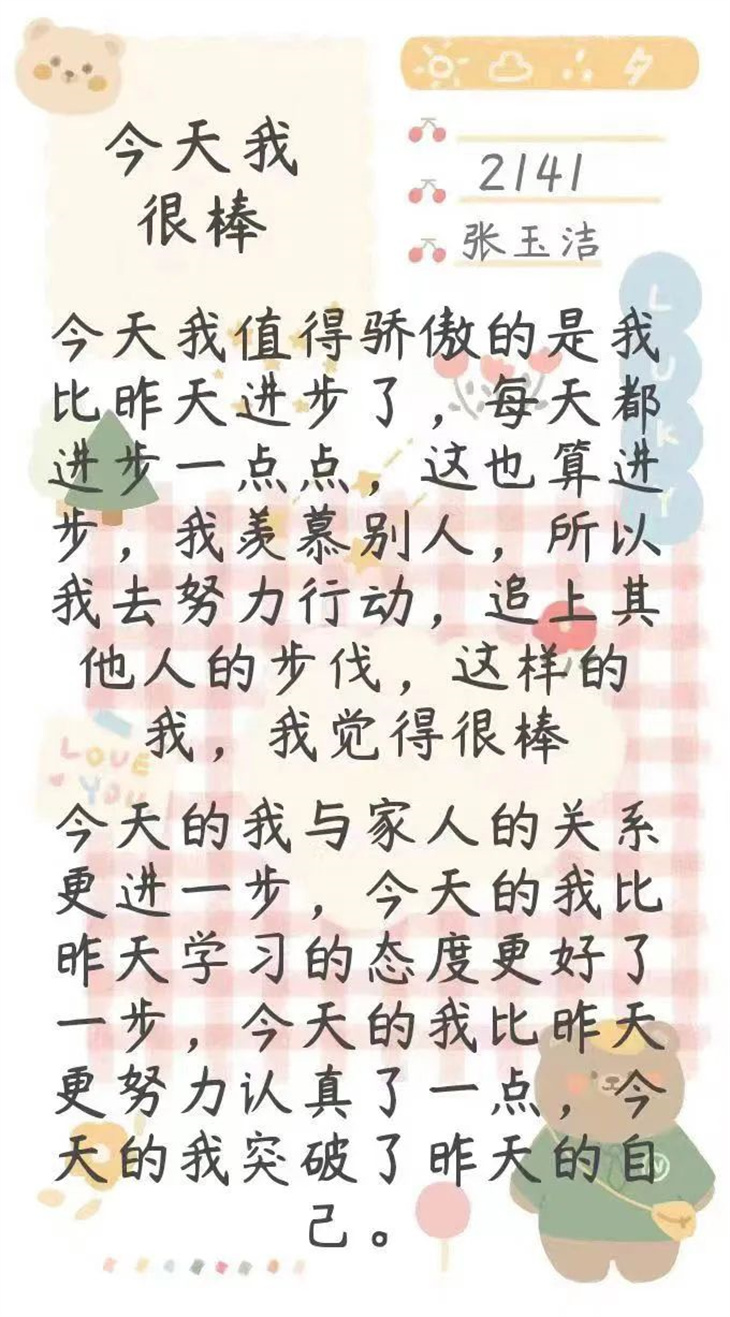 今天我
很棒
2141
张玉洁
今天我值得骄傲的是我
比昨天进步了，每天都
进步一点点，这也算进
步，我羡慕别人，所以
我去努力行动，追上其
他人的步伐，这样的
我，我觉得很棒
今天的我与家人的关系
更进一步，今天的我比
昨天学习的态度更好了
一步，今天的我比昨天
更努力认真了一点，今
天的我突破了昨天的自
己。
L
U
K
Y
LOVE
YOU
N